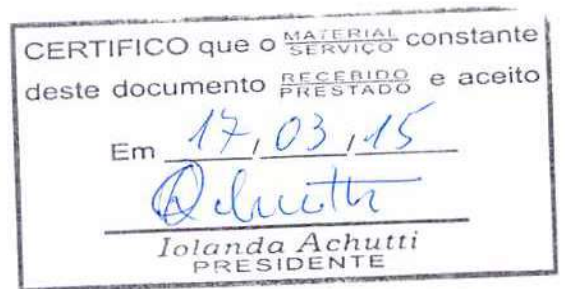 CERTIFICO que o MATERIAL SERVIÇO constante
deste documento RECEBIDO PRESTADO e aceito
Em 17, 03, 15
Iolanda Achutti
PRESIDENTE